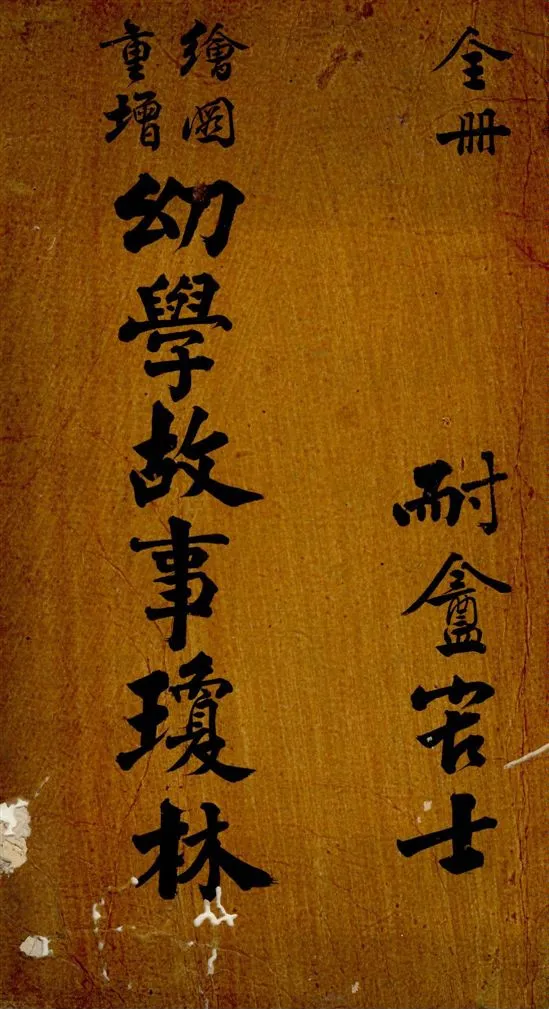 全冊
耐盦士
繪圖
重增
幼學故事瓊林